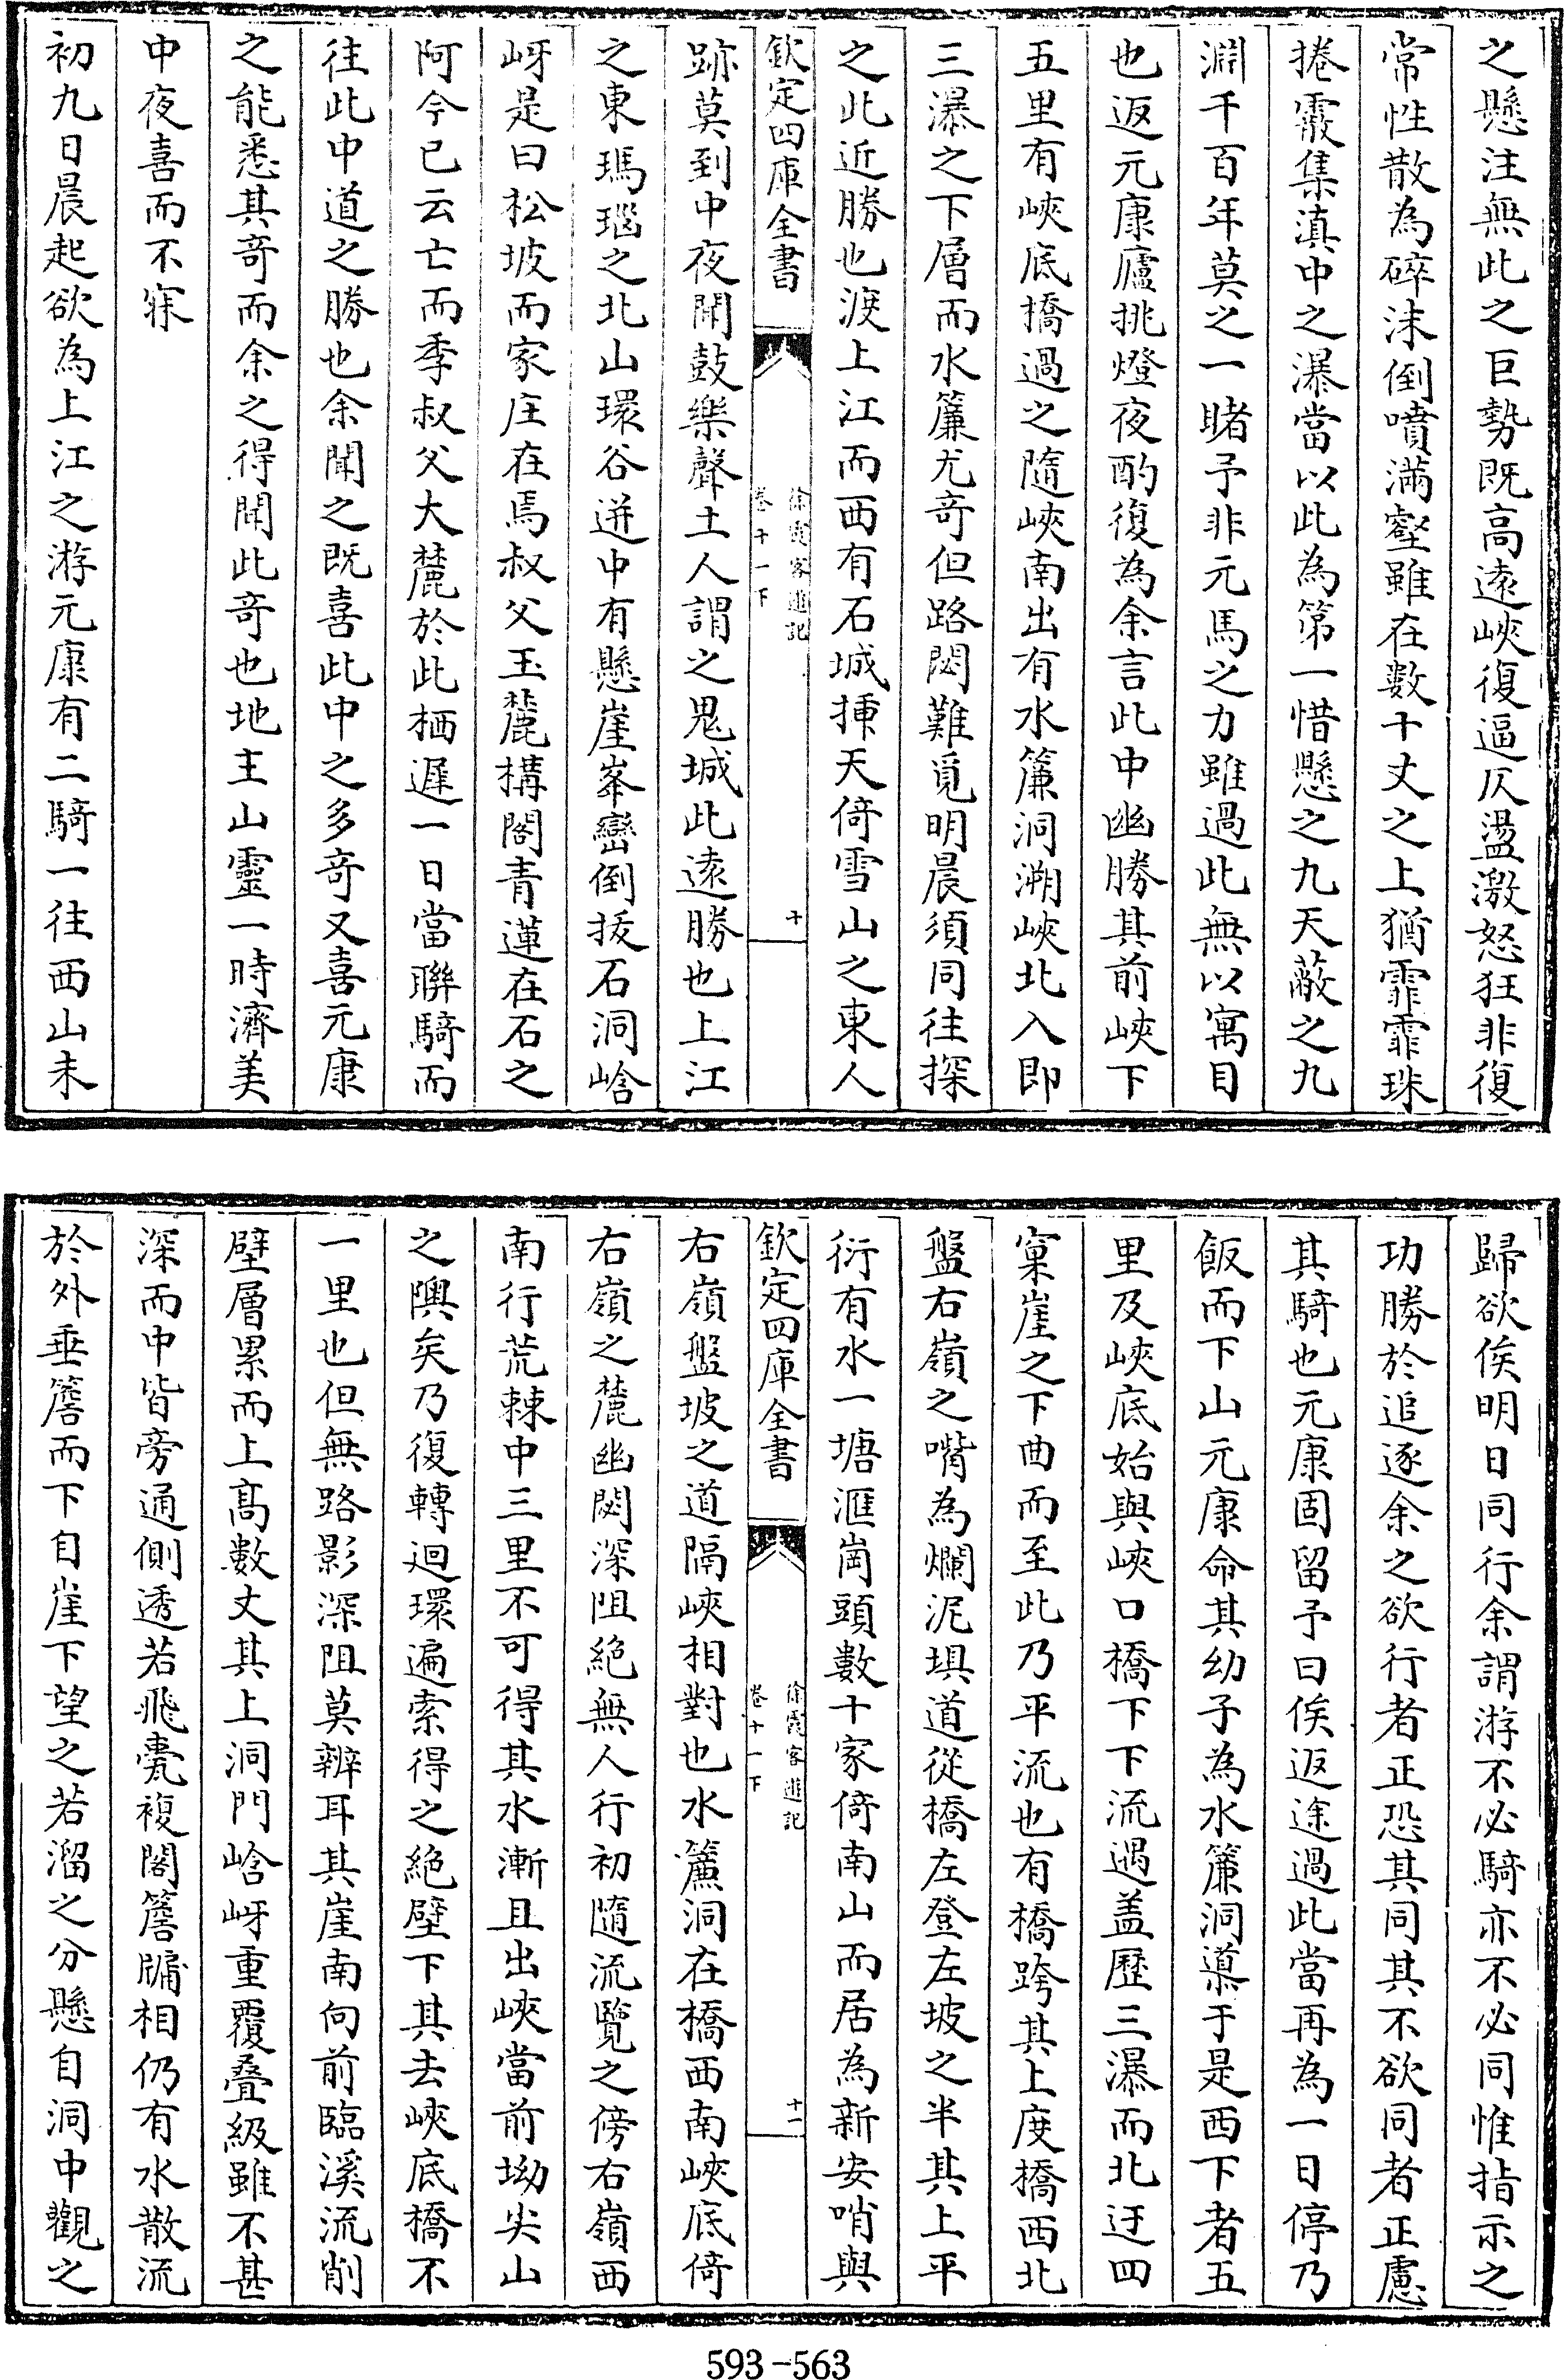 之懸注無此之巨勢既高遠峽復逼仄盪激怒狂非復
常性散為碎沫倒噴滿壑雖在數十丈之上猶霏霏珠
捲霰集滇中之瀑當以此為第一惜懸之九天蔽之九
淵千百年莫之一睹予非元馬之力雖過此無以寓目
也返元康廬挑燈夜酌復為余言此中幽勝其前峽下
五里有峽底橋過之隨峽南出有水簾洞溯峽北入即
三瀑之下層而水簾尤奇但路閟難覓明晨須同往探
之此近勝也渡上江而西有石城揷天倚雪山之東人
欽定四庫全書
徐霞客遊記
卷十一下
十
跡莫到中夜聞鼓樂聲土人謂之鬼城此遠勝也上江
之東瑪瑙之北山環谷迸中有懸崖峯巒倒拔石洞岈
岈是曰松坡而家庄在馬叔父玉麓構閣青蓮在石之
阿今已云亡而季叔父大麓於此栖遲一日當聯騎而
往此中道之勝也余聞之既喜此中之多奇又喜元康
之能悉其奇而余之得聞此奇也地主山靈一時濟美
中夜喜而不寐
初九日晨起欲為上江之游元康有二騎一往西山未
歸欲俟明日同行余謂游不必騎亦不必同惟指示之
功勝於追逐余之欲行者正恐其同其不欲同者正慮
其騎也元康固留予曰俟返途過此當再為一日停乃
飯而下山元康命其幼子為水簾洞導于是西下者五
里及峽底始與峽口橋下下流遇盖歷三瀑而北迂四
窠崖之下曲而至此乃平流也有橋跨其上度橋西北
盤右嶺之嘴為爛泥埧道從橋左登左坡之半其上平
衍有水一塘滙崗頭數十家倚南山而居為新安哨與
欽定四庫全書
徐霞客遊記
卷十一下
十一
右嶺盤坡之道隔峽相對也水簾洞在橋西南峽底倚
右嶺之麓幽閟深阻絕無人行初隨流覽之傍右嶺西
南行荒棘中三里不可得其水漸且出峽當前坳尖山
之隩矣乃復轉迴環遍索得之絕壁下其去峽底橋不
一里也但無路影深阻莫辨耳其崖南向前臨溪流削
壁層累而上高數丈其上洞門岈岈重覆疊級雖不甚
深而中皆旁通側透若飛甍複閣簷牖相仍有水散流
於外垂簷而下自崖下望之若溜之分懸自洞中觀之